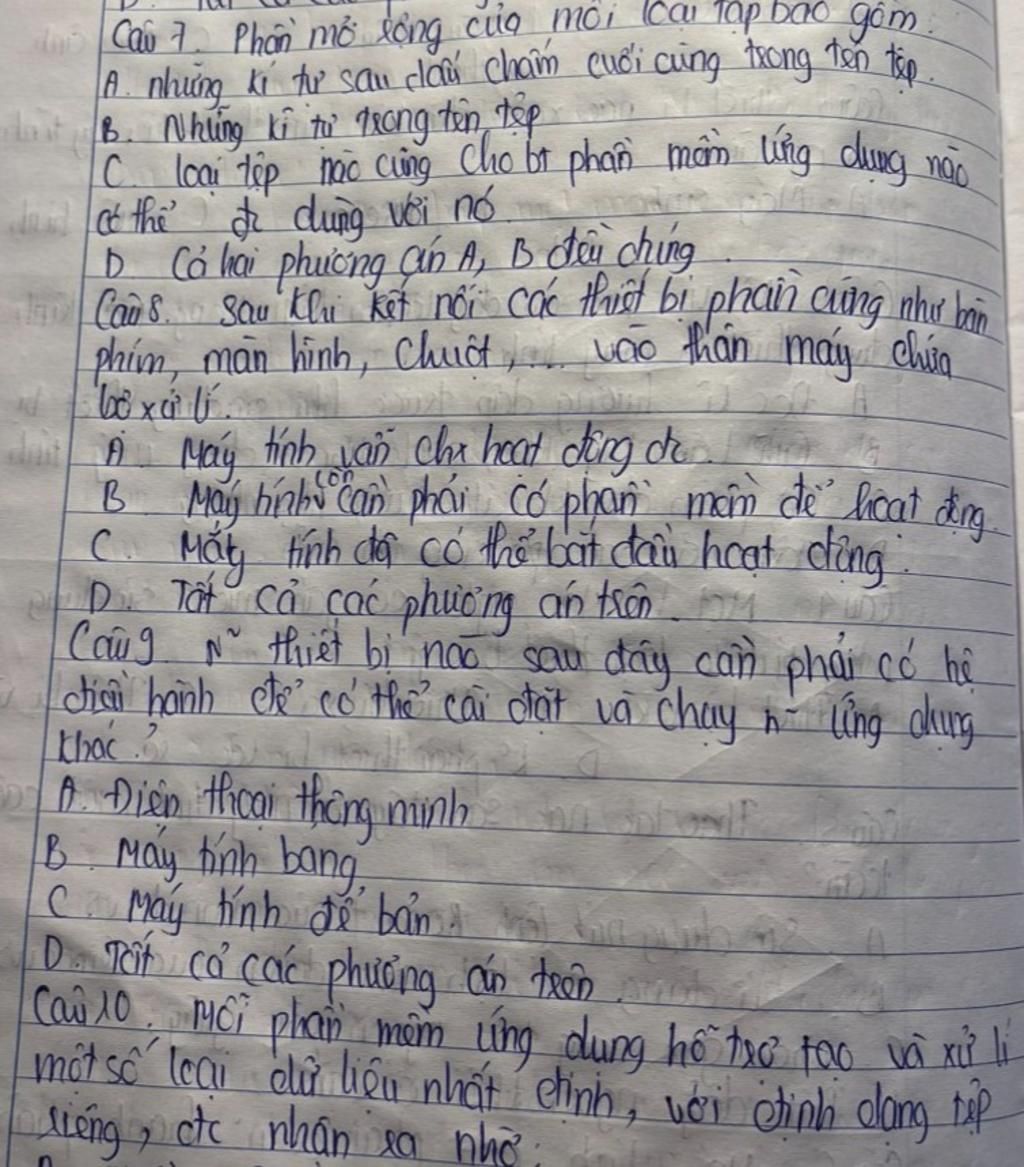 Câu 7. Phần mở rộng của mỗi loại tệp bao gồm:
A. những kí tự sau dấu chấm cuối cùng trong tên tệp.
B. Những kí tự trong tên tệp
C. loại tệp nào cũng cho bt phần mềm ứng dụng nào
có thể đc dùng với nó
D Cả hai phương án A, B đều chúng
Câu 8. Sau khi kết nối các thiết bị phần cứng như bàn
phím, màn hình, chuột,... vào thân máy chứa
bộ xử lí.
A. Máy tính vẫn chx hoạt động đc.
B Máy tính còn cần phải có phần mềm để hoạt động.
C. Máy tính đã có thể bắt đầu hoạt động.
D. Tất cả các phương án trên.
Câu 9 N~ thiết bị nào sau đây cần phải có hệ
điều hành để có thể cài đặt và chạy n~ ứng dụng
khác.?
A. Điện thoại thông minh
B. Máy tính bảng
C. Máy tính để bàn.
D. Tất cả các phương án trên.
Câu 10. Mỗi phần mềm ứng dụng hỗ trợ tạo và xử lí
một số loại dữ liệu nhất định, với định dạng tệp
riêng, đc nhận ra nhờ: